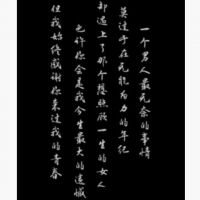 一个男人最无奈的事情
莫过于在无能为力的年纪
却遇上了那个想照顾一生的女人
也许你会是我今生最大的遗憾
但我始终感谢你来过我的青春